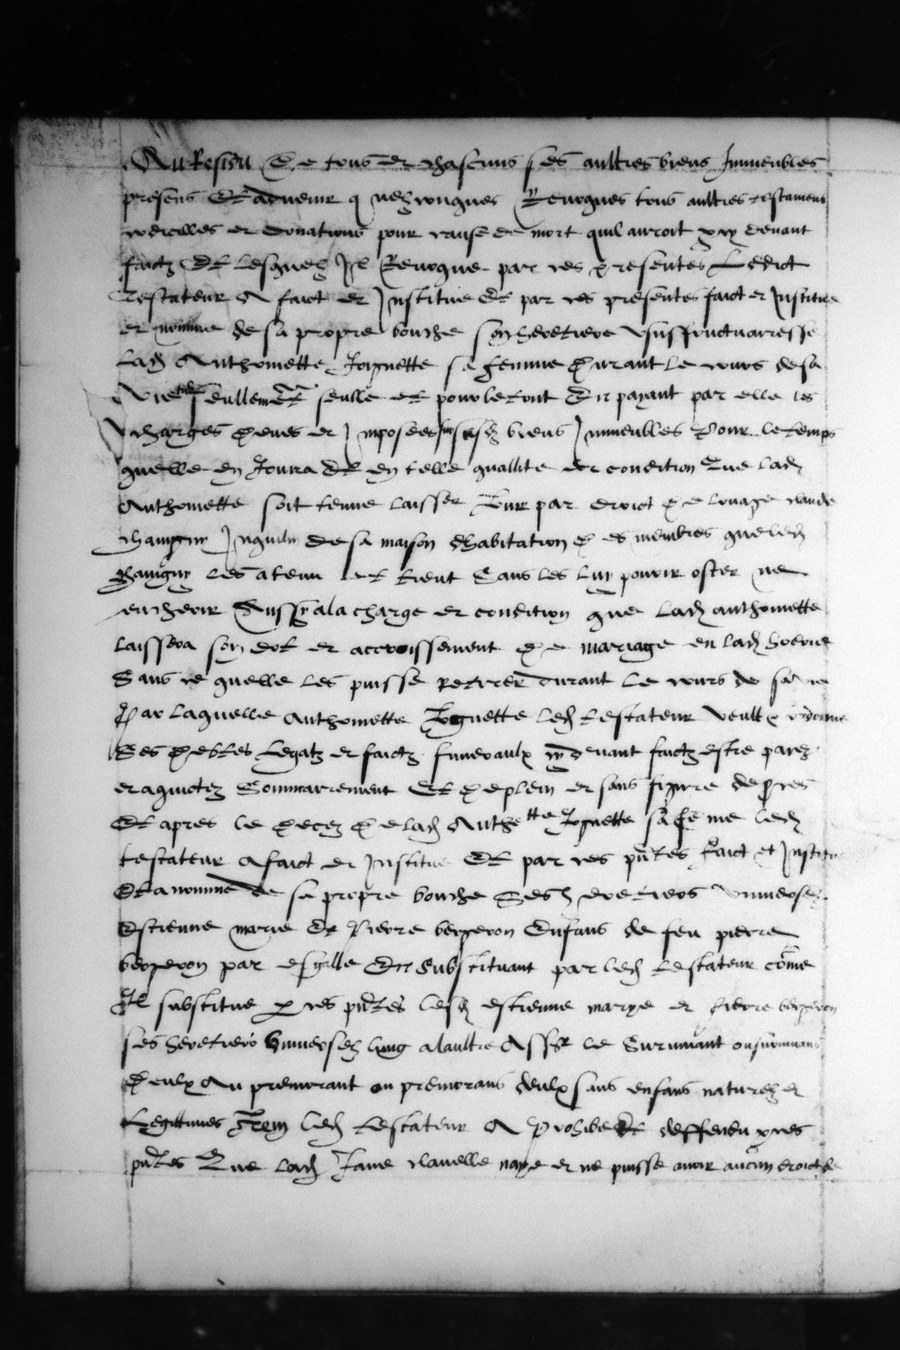 Au Residu de tous et chascuns ses aultres biens Immeubles
presens Et advenir q nelzconques Revoques tous aultres testamens
codicilles et donations pour cause de mort quil auroit cy devant
faictz Et lesquelz Il Revoque par ces presentes Ledict
Testateur A faict et Institue Et par ces presentes faict et Institue
et nomme de sa propre bouche son heretiere Usuffructuaresse
Lad Anthomette Joignette sa femme Durant le cours de sa
Vie seullement seulle et pour le tout En payant par elle les
charges Deues et Imposees sus lesd biens Immeubles Pour le temps
quelle en Joura Et en telle quallite et condition Que lad
Anthomette soit tenue laisser Jouir par droict de louage claude
champtny Inquilin de sa maison dhabitation des membres queled
chamgny les a tenu et tient Sans les luy pouvoir oster ne
encherir Aussy a la charge et condition que lad anthomette
laissera son dot et accroissement de mariage en lad hoerie
Sans ce quelle les puisse Retirer durant le cours de sa vie
Par laquelle Anthomette Joignette led testateur Veult ordonne
Ses Debtes legatz et faictz funeraulx cy devant faictz estre paiez
et aquictez Sommairement Et de plein et sans figure de proces
Et apres le decez de lad Anthette Joignette sa feme led
testateur a faict et Institue Et par ces pntes faict et Institue
Et a nomme de sa propre bouche Ses heretiers Universelz
Estienne marie Et Pierre bergeron Enfans de feu pierre
bergeron par esgalle En Substituant par led testateur come
Il substitue p ces pntes lesd estienne marye et pierre bergeron
ses heretiers Universelz lung a laultre Assr le Survivant ou survivans
Deulx Au premorant ou premorans deulx sans enfans naturelz et
Legittimes Item led testateur A Prohibe Et deffendu p ces
pntes Que lad Jane clavelle naye et ne puisse avoir aucun droict de